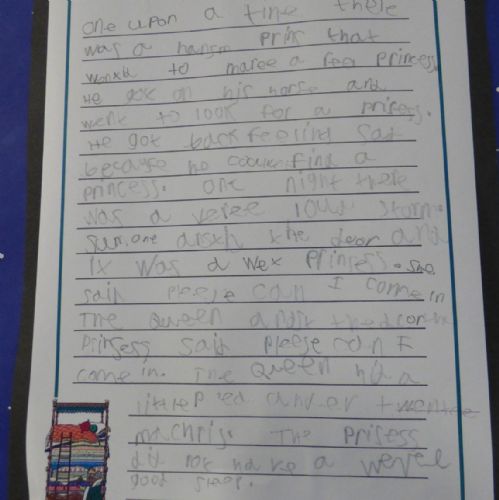 one upon a time there
was a hansm prins that
wonxd to maree a reel princess.
He got on his horse and
went to look for a prisess.
He got back feeling sad
because he couldn't find a
princess. one night there
was a veree loud storm.
sum one at the door and
it was a wet prinsess. she
said pleese can I come in
The Queen
Prinsess said pleese can I
come in. The Queen hid a
little ped under twentee
machris. The prisess
did not have a veree
good sleep.